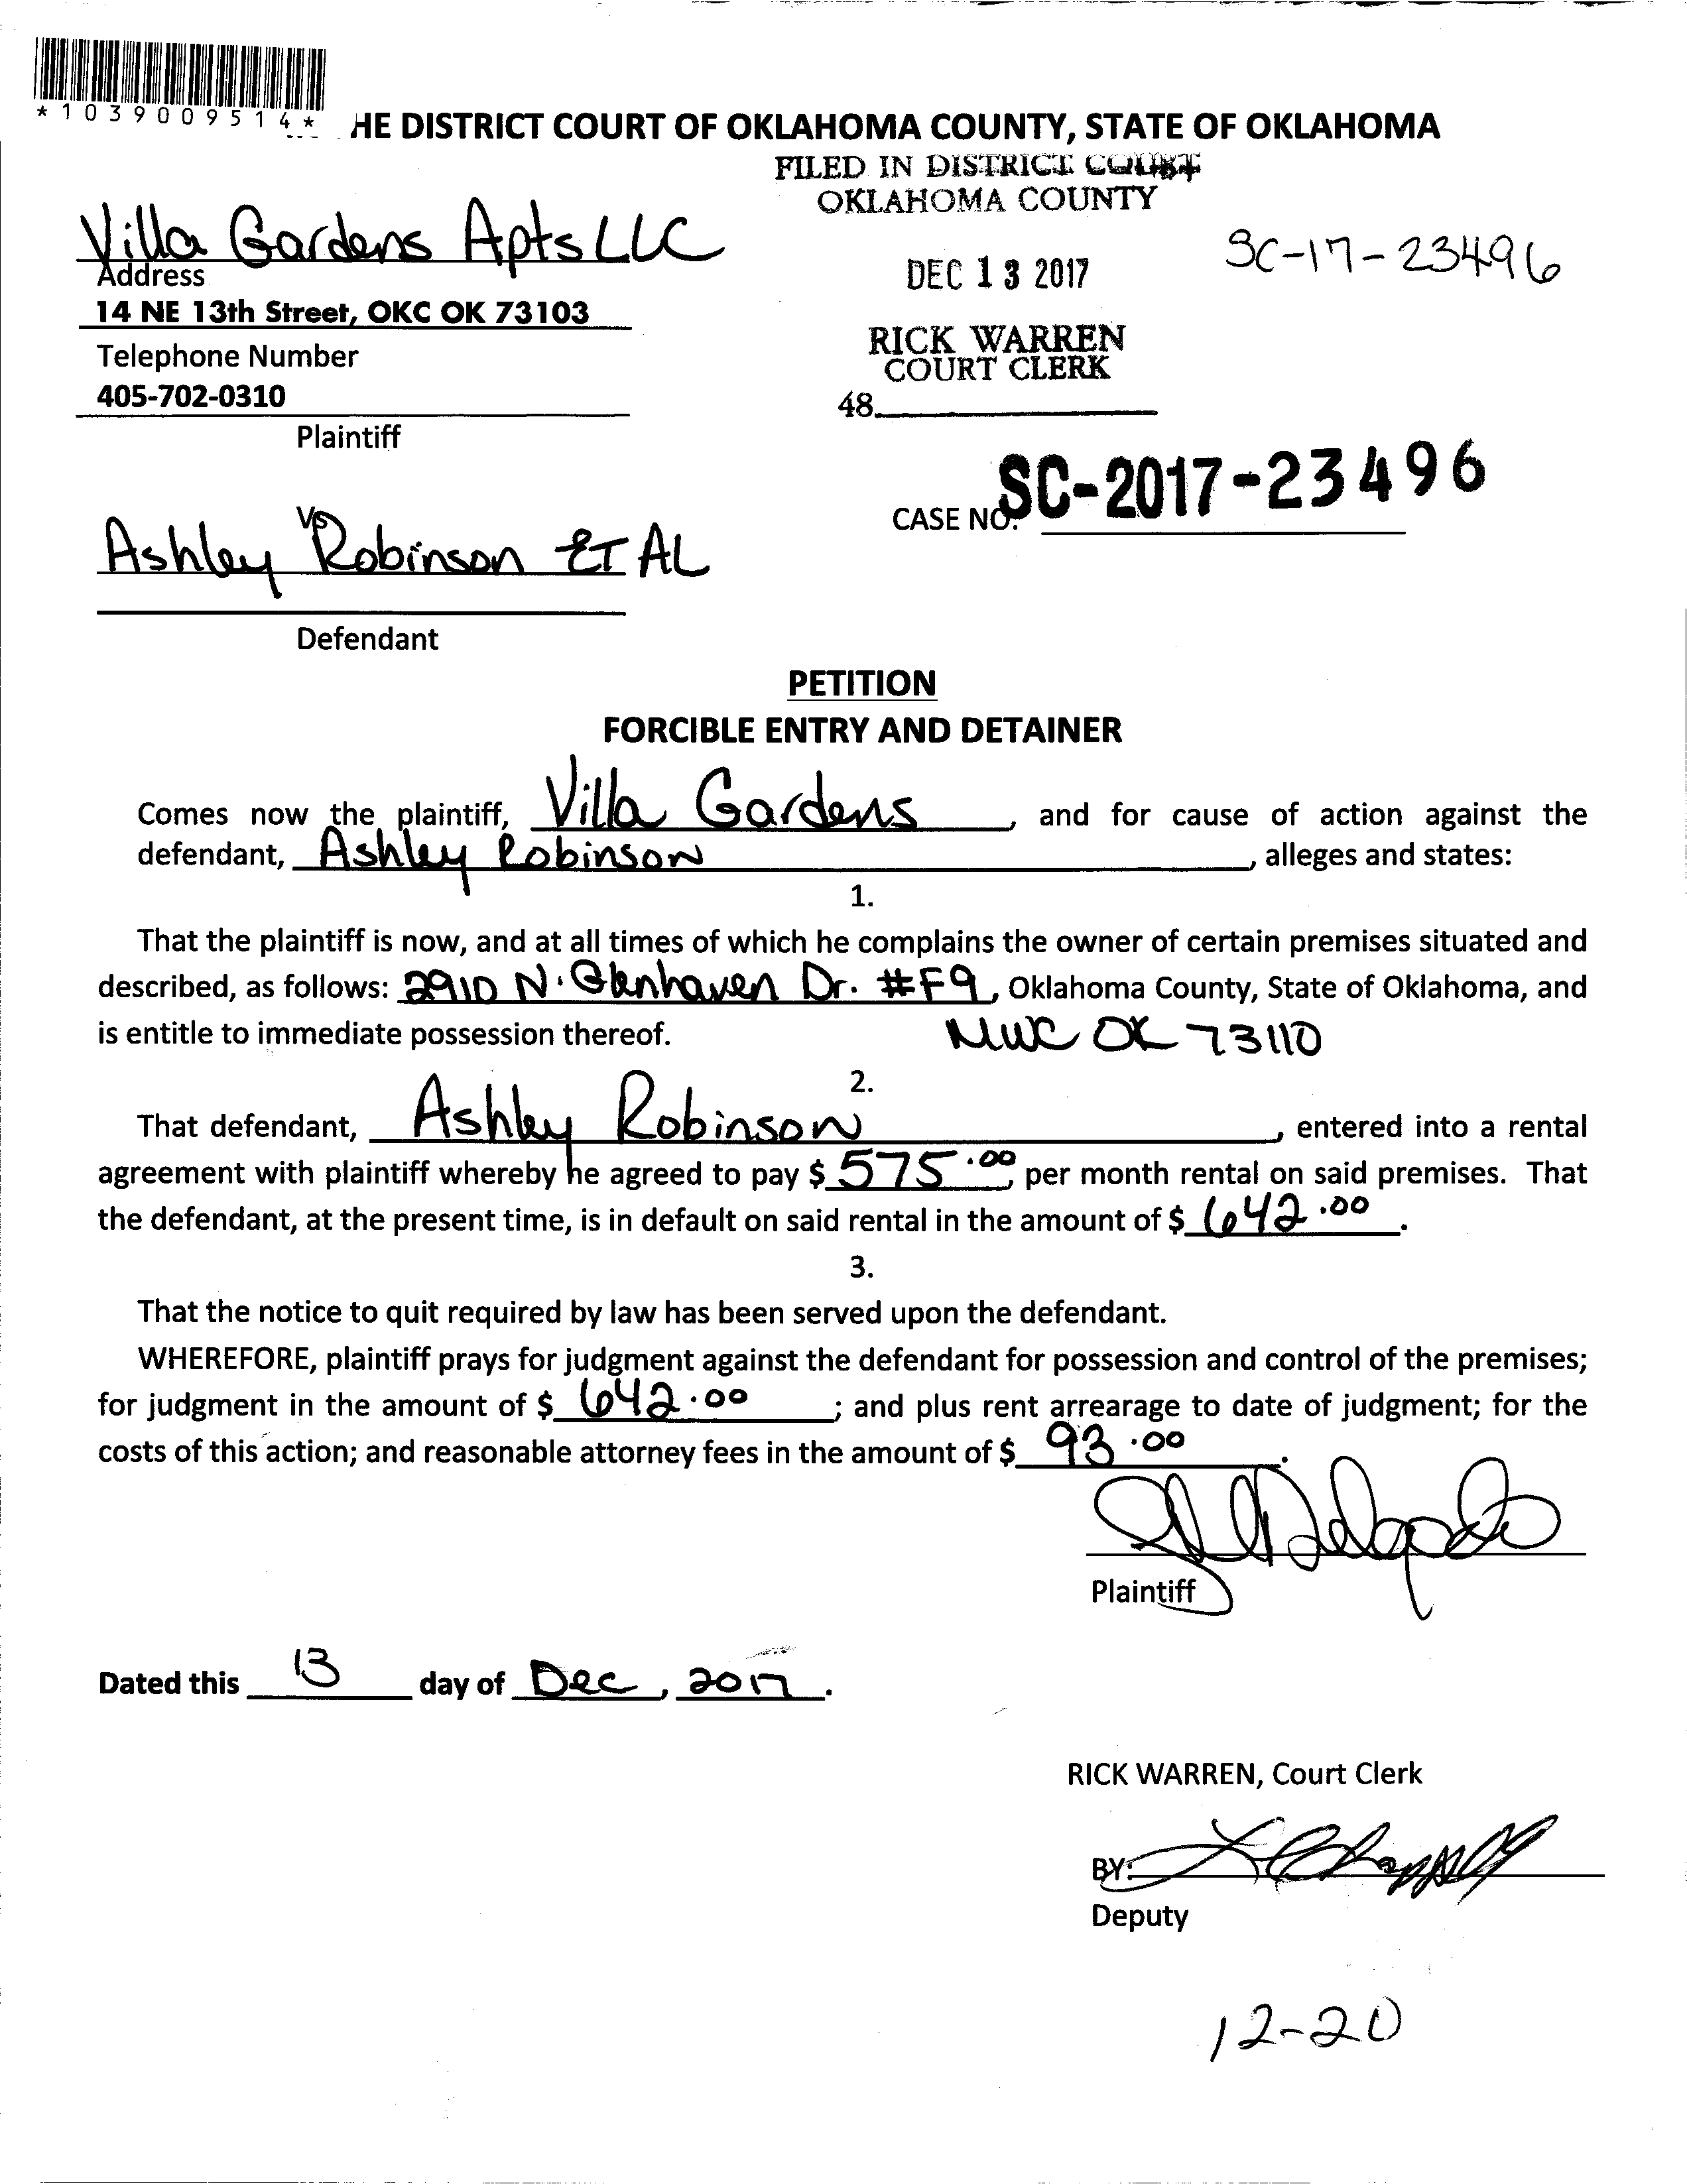 *1039009514*
HE DISTRICT COURT OF OKLAHOMA COUNTY, STATE OF OKLAHOMA
FILED IN DISTRICT COURT
OKLAHOMA COUNTY
Villa Gardens Apts LLC
SC-17-23496
Address
DEC 13 2017
14 NE 13th Street, OKC OK 73103
Telephone Number
RICK WARREN
COURT CLERK
405-702-0310
48
Plaintiff
SC-2017-23496
CASE NO.
vs
Ashley Robinson ET AL
Defendant
PETITION
FORCIBLE ENTRY AND DETAINER
Comes now the plaintiff, Villa Gardens, and for cause of action against the
defendant, Ashley Robinson, alleges and states:
1.
That the plaintiff is now, and at all times of which he complains the owner of certain premises situated and
described, as follows: 2910 N. Glenhaven Dr. #F9, Oklahoma County, State of Oklahoma, and
is entitle to immediate possession thereof. MWC OK 73110
2.
That defendant, Ashley Robinson, entered into a rental
agreement with plaintiff whereby he agreed to pay $ 575.00, per month rental on said premises. That
the defendant, at the present time, is in default on said rental in the amount of $ 642.00.
3.
That the notice to quit required by law has been served upon the defendant.
WHEREFORE, plaintiff prays for judgment against the defendant for possession and control of the premises;
for judgment in the amount of $ 642.00; and plus rent arrearage to date of judgment; for the
costs of this action; and reasonable attorney fees in the amount of $ 93.00.
Plaintiff
Dated this 13 day of Dec, 2017.
RICK WARREN, Court Clerk
BY:
Deputy
12-20